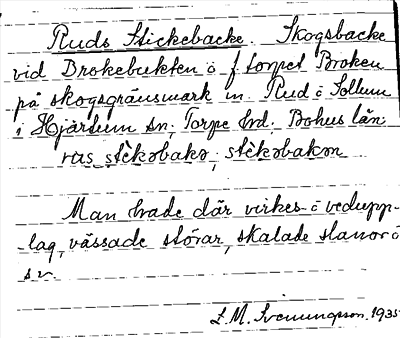 Ruds Stickebacke. Skogsbacke
vid Brokebukten ö f torpet Broken
på skogsgränsmark m. Rud o Sollum
i Hjärtum sn, Torpe hd. Bohus län
rus stèkəbakə, stèkəbakən
Man hade där virkes- o vedupp-
-lag, vässade störar, skalade slanor o
sv.
L. M. Svenungsson. 1935